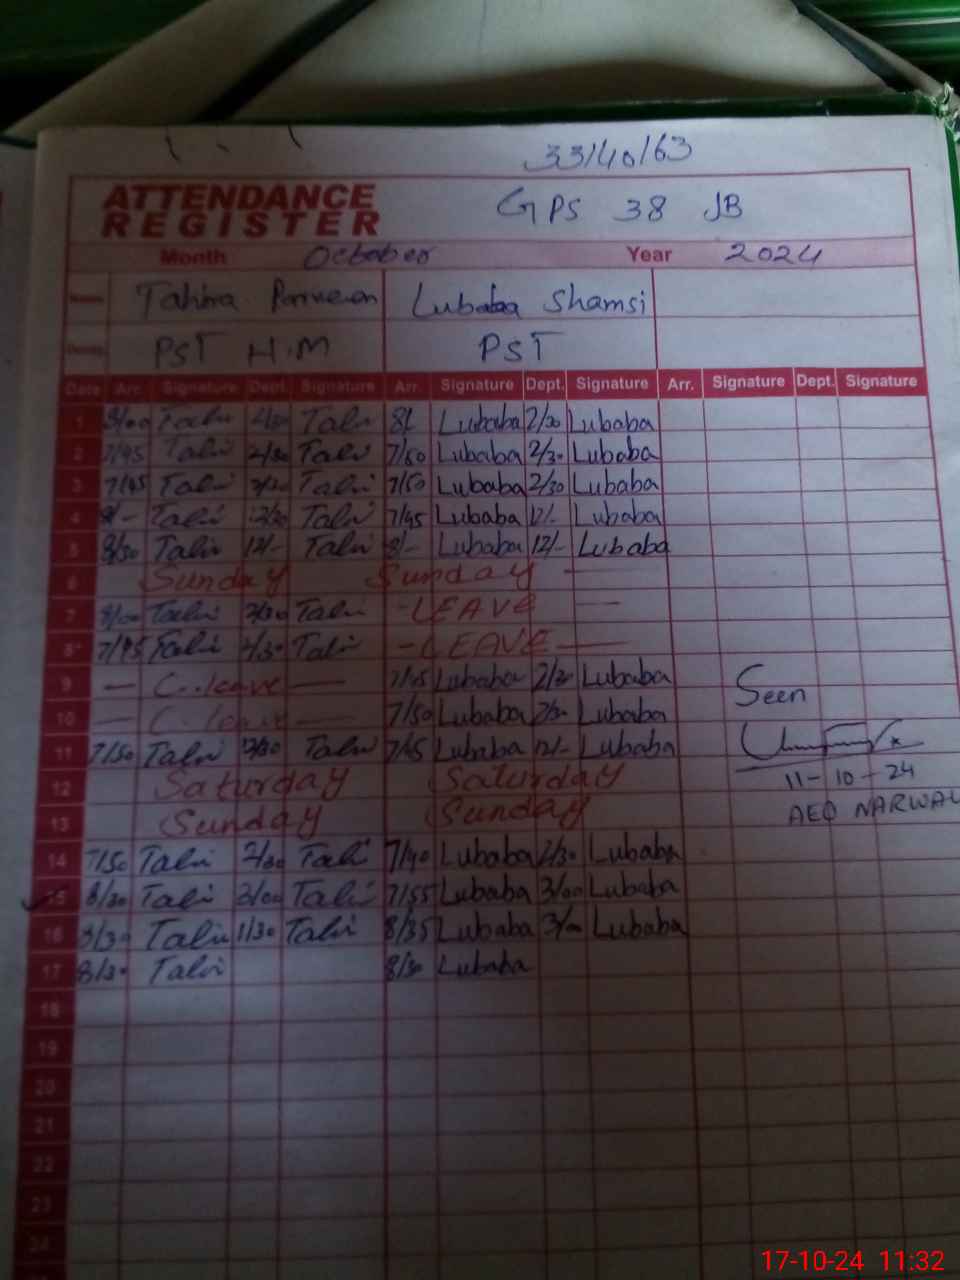 33140163
ATTENDANCE REGISTER
GPS 38 JB
Month October Year 2024
Name Tahira Parveen Lubaba Shamsi
Desig. PST H.M PST
Date Arr. Signature Dept. Signature Arr. Signature Dept. Signature Arr. Signature Dept. Signature
1 8/00 Tahi 2/30 Tahi 8/ Lubaba 2/30 Lubaba
2 7/45 Tahi 2/30 Tahi 7/50 Lubaba 2/30 Lubaba
3 7/45 Tahi 2/30 Tahi 7/50 Lubaba 2/30 Lubaba
4 8/- Tahi 12/30 Tahi 7/45 Lubaba 12/- Lubaba
5 8/30 Tahi 12/- Tahi 8/- Lubaba 12/- Lubaba
6 Sunday Sunday —
7 8/00 Tahi 2/30 Tahi - LEAVE —
8 7/45 Tahi 2/30 Tahi - LEAVE —
9 — C. leave — 7/45 Lubaba 2/30 Lubaba
10 — C. leave — 7/50 Lubaba 2/30 Lubaba
Seen
11 7/50 Tahi 12/30 Tahi 7/45 Lubaba 12/- Lubaba
12 Saturday Saturday
11-10-24
13 Sunday Sunday
AEO NARWAL
14 7/50 Tahi 2/30 Tahi 7/40 Lubaba 2/30 Lubaba
15 8/30 Tahi 3/00 Tahi 7/55 Lubaba 3/00 Lubaba
16 8/30 Tahi 1/30 Tahi 8/35 Lubaba 3/00 Lubaba
17 8/30 Tahi 8/30 Lubaba
18
19
20
21
22
23
24
17-10-24 11:32